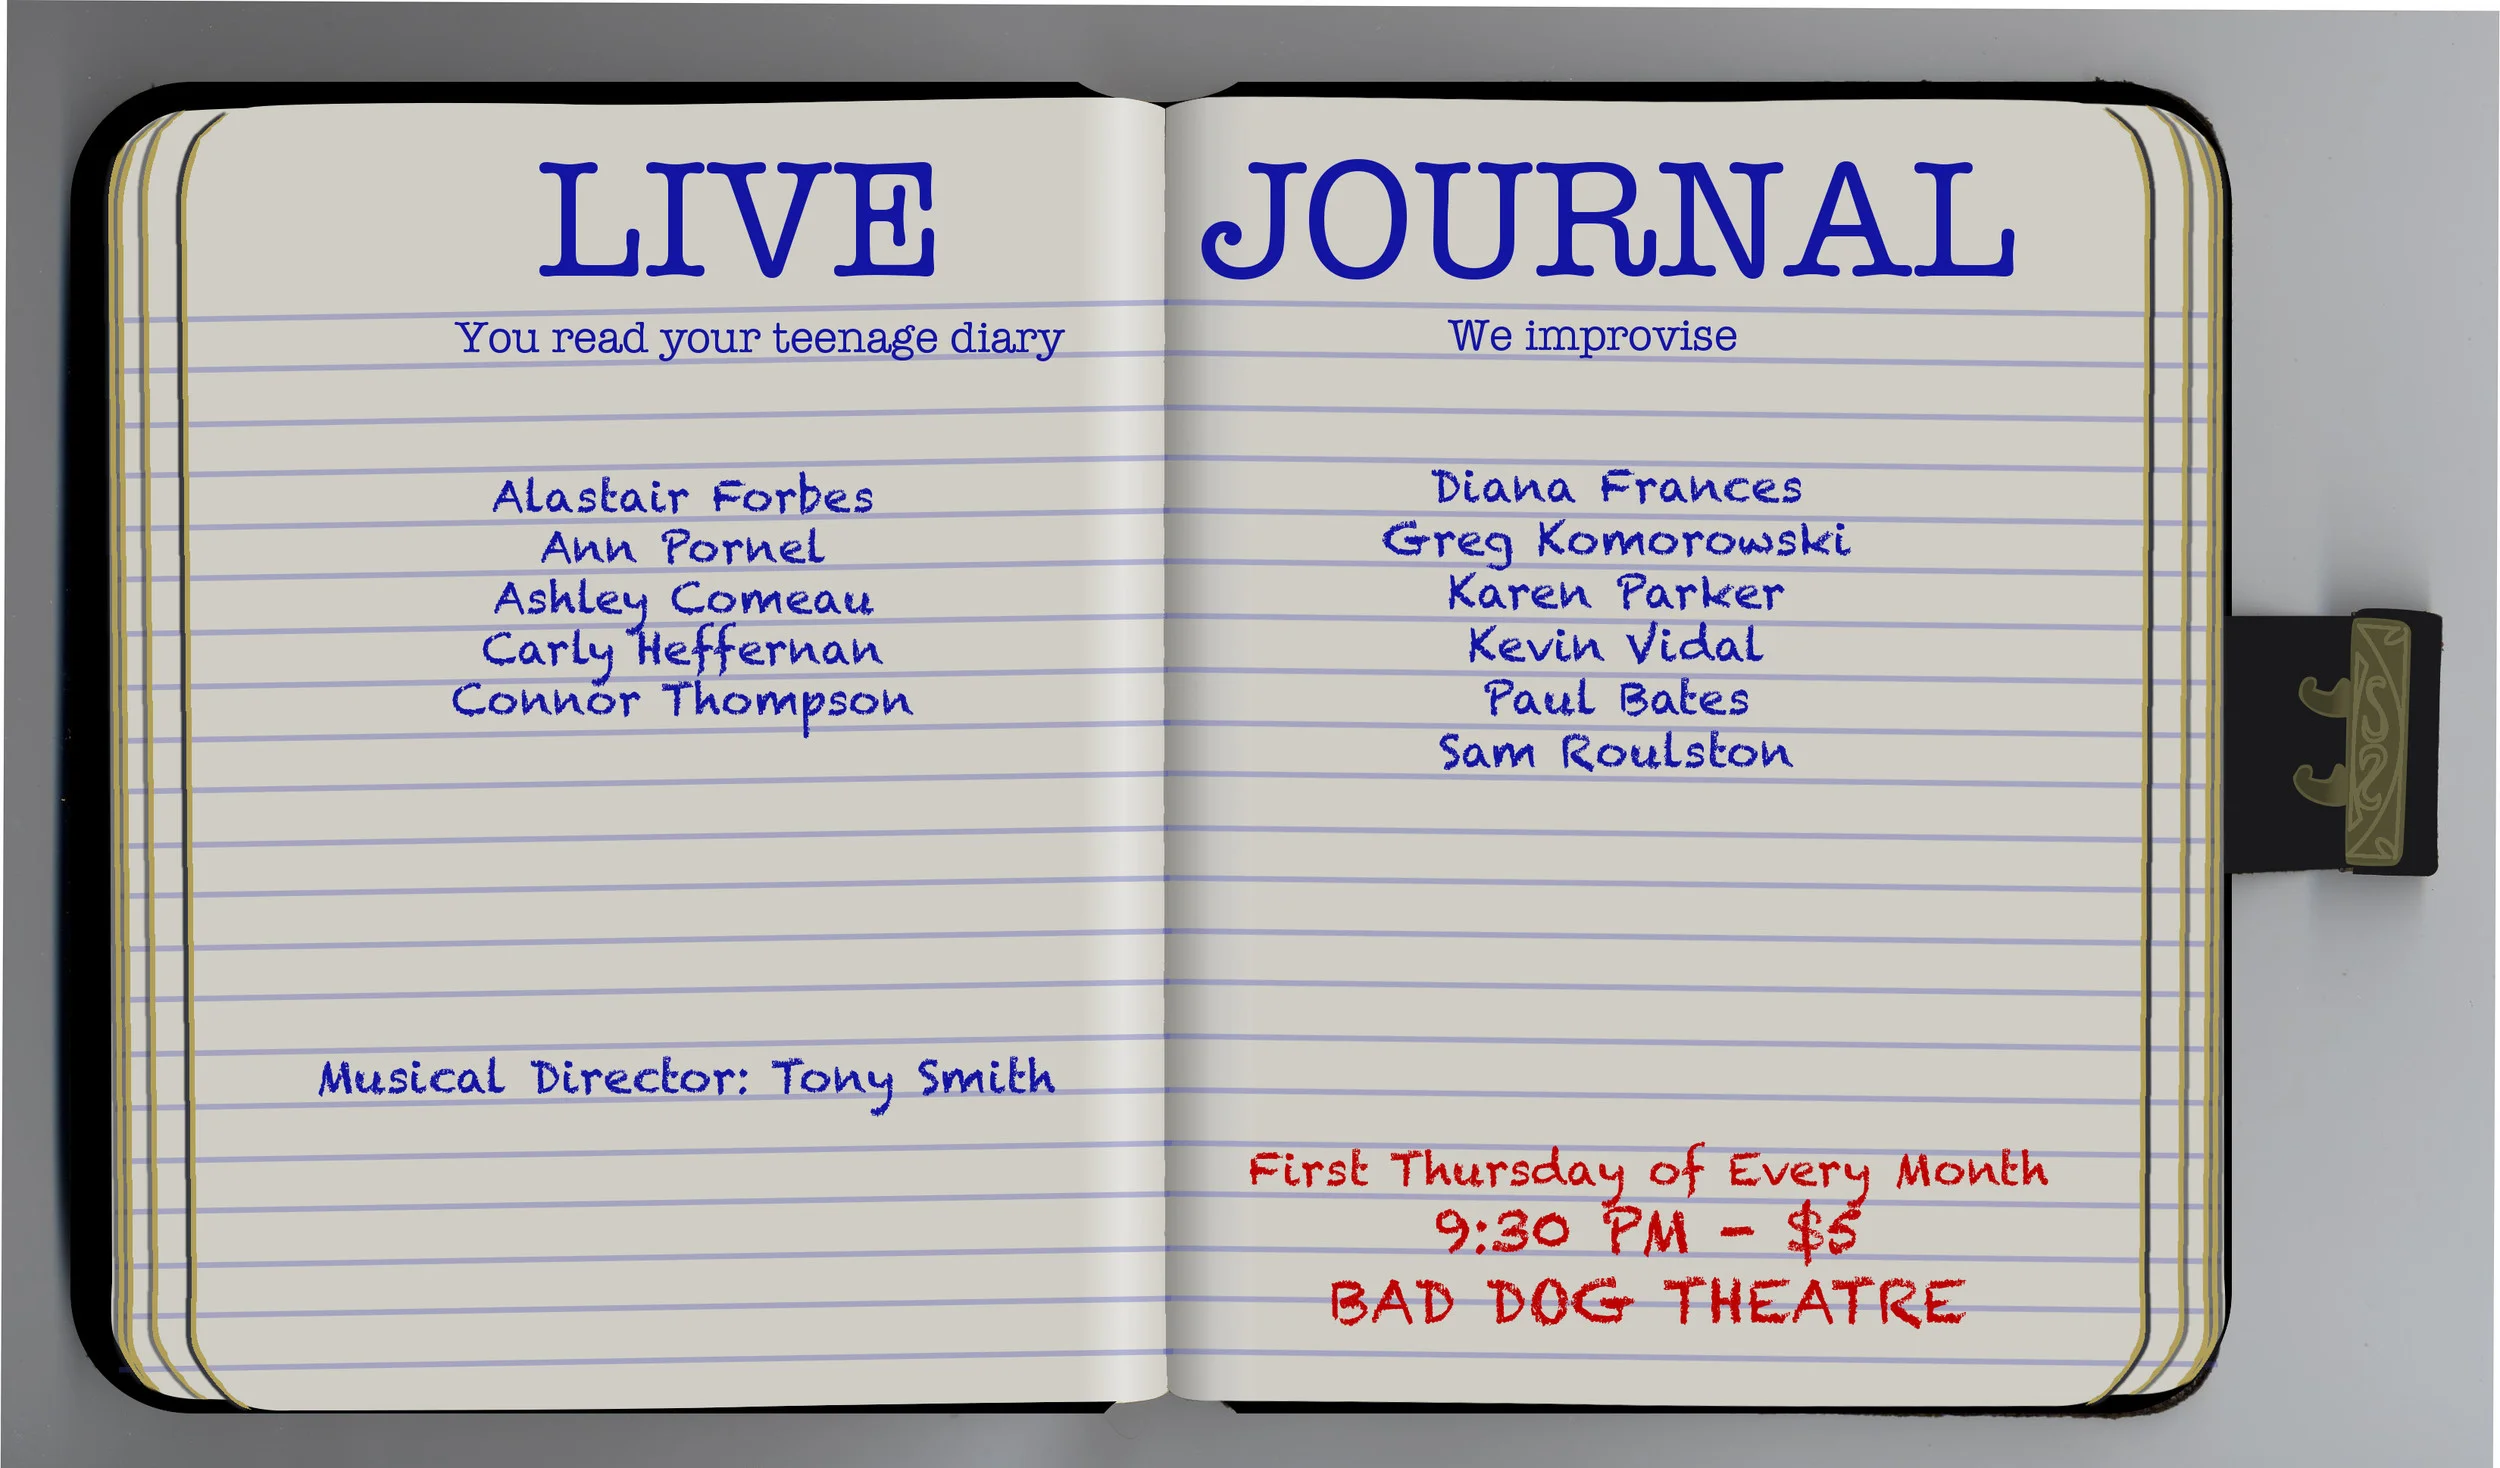 LIVE JOURNAL
You read your teenage diary
We improvise
Alastair Forbes
Ann Pornel
Ashley Comeau
Carly Heffernan
Connor Thompson
Diana Frances
Greg Komorowski
Karen Parker
Kevin Vidal
Paul Bates
Sam Roulston
Musical Director: Tony Smith
First Thursday of Every Month
9:30 PM - $5
BAD DOG THEATRE